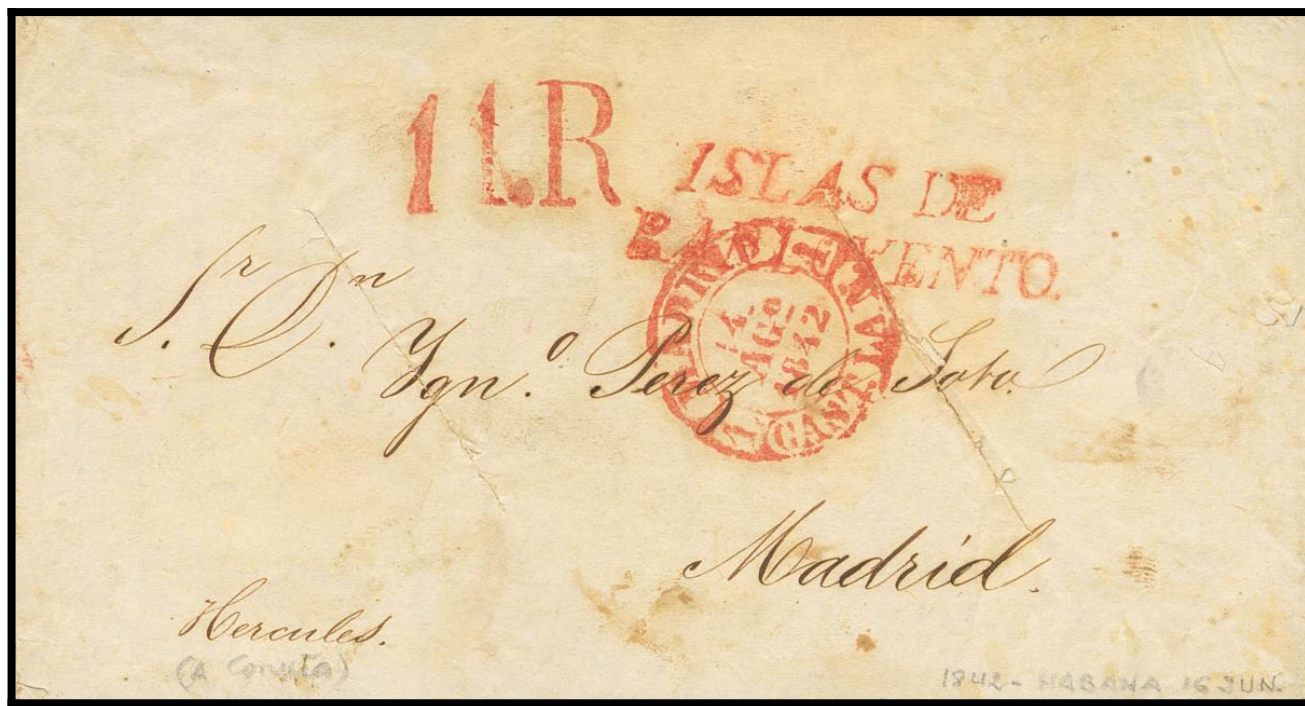 11.R
ISLAS DE
BARLOVENTO.
MADRID
14
AGO
1842
CASTLA LA N.
Sr. Dn. Ygn.o Perez de Soto
Madrid.
Hercules.
(A Coruña)
1842 - HABANA 16 JUN.